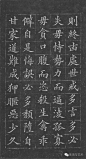 則終凶處世戒多言多必
失毋恃勢力而凌逼孤寡
毋貪口腹而恣殺生禽乖
僻自是悔誤必多頹隋自
甘家道難成狎昵惡少久